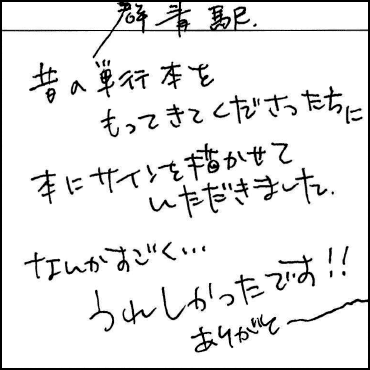 群青駅.
昔の単行本を
もってきてくださったちに
本にサインを描かせて
いただきました.
なんかすごく…
うれしかったです!!
ありがと〜